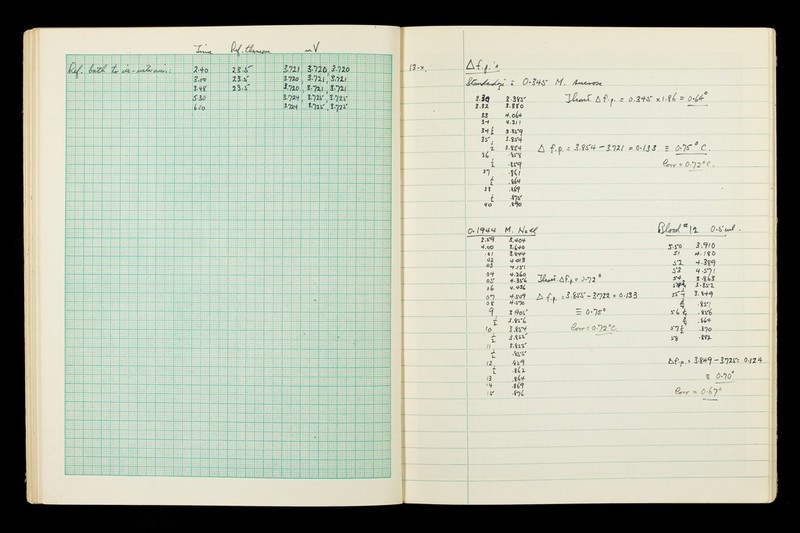 Time Ref. therm mV
Ref. bath to ice-water mix:
2.40 23.5 3.721 3.720 3.720
23.5 3.720 3.721, 3.721
3.48 23.5 3.720 3.721, 3.721
5.30 3.724, 3.725, 3.725
6.10 3.724 3.725, 3.725
13-x. Δf.p.'s
0.345 M.
3.30 3.385
3.32 3.880
33 4.064
34 4.211
34½ 3.859
35 3.854
½ 3.854
36 .858
½ .859
37 .861
½ .864
38 .869
½ .875
40 .890
Theoret. Δf.p. = 0.345 x 1.86 = 0.64°
Δ f.p. = 3.854 - 3.721 = 0.133 ≡ 0.75° C.
Corr = 0.72° C.
0.1944 M. NaCl
3.59 3.404
4.00 3.640
.01 3.844
02 4.013
03 4.151
04 4.260
05 4.356
06 4.436
07 4.509
08 4.570
9 3.905
½ 3.856
10 3.854
½ 3.855
11 3.855
½ .855
12 .859
½ .862
13 .864
14 .869
15 .876
Theoret. Δf.p. = 0.72°
Δ f.p. = 3.855 - 3.722 = 0.133
≡ 0.75°
Corr = 0.72° C.
Blood # 12 0.5 ml.
5.50 3.910
51 4.180
52 4.389
53 4.571
54 3.863
54½ 3.852
55 3.849
½ .851
56 ½ .856
½ .864
57½ .870
58 .882
Δf.p. = 3.849 - 3.725 = 0.124
≡ 0.70°
Corr = 0.67°